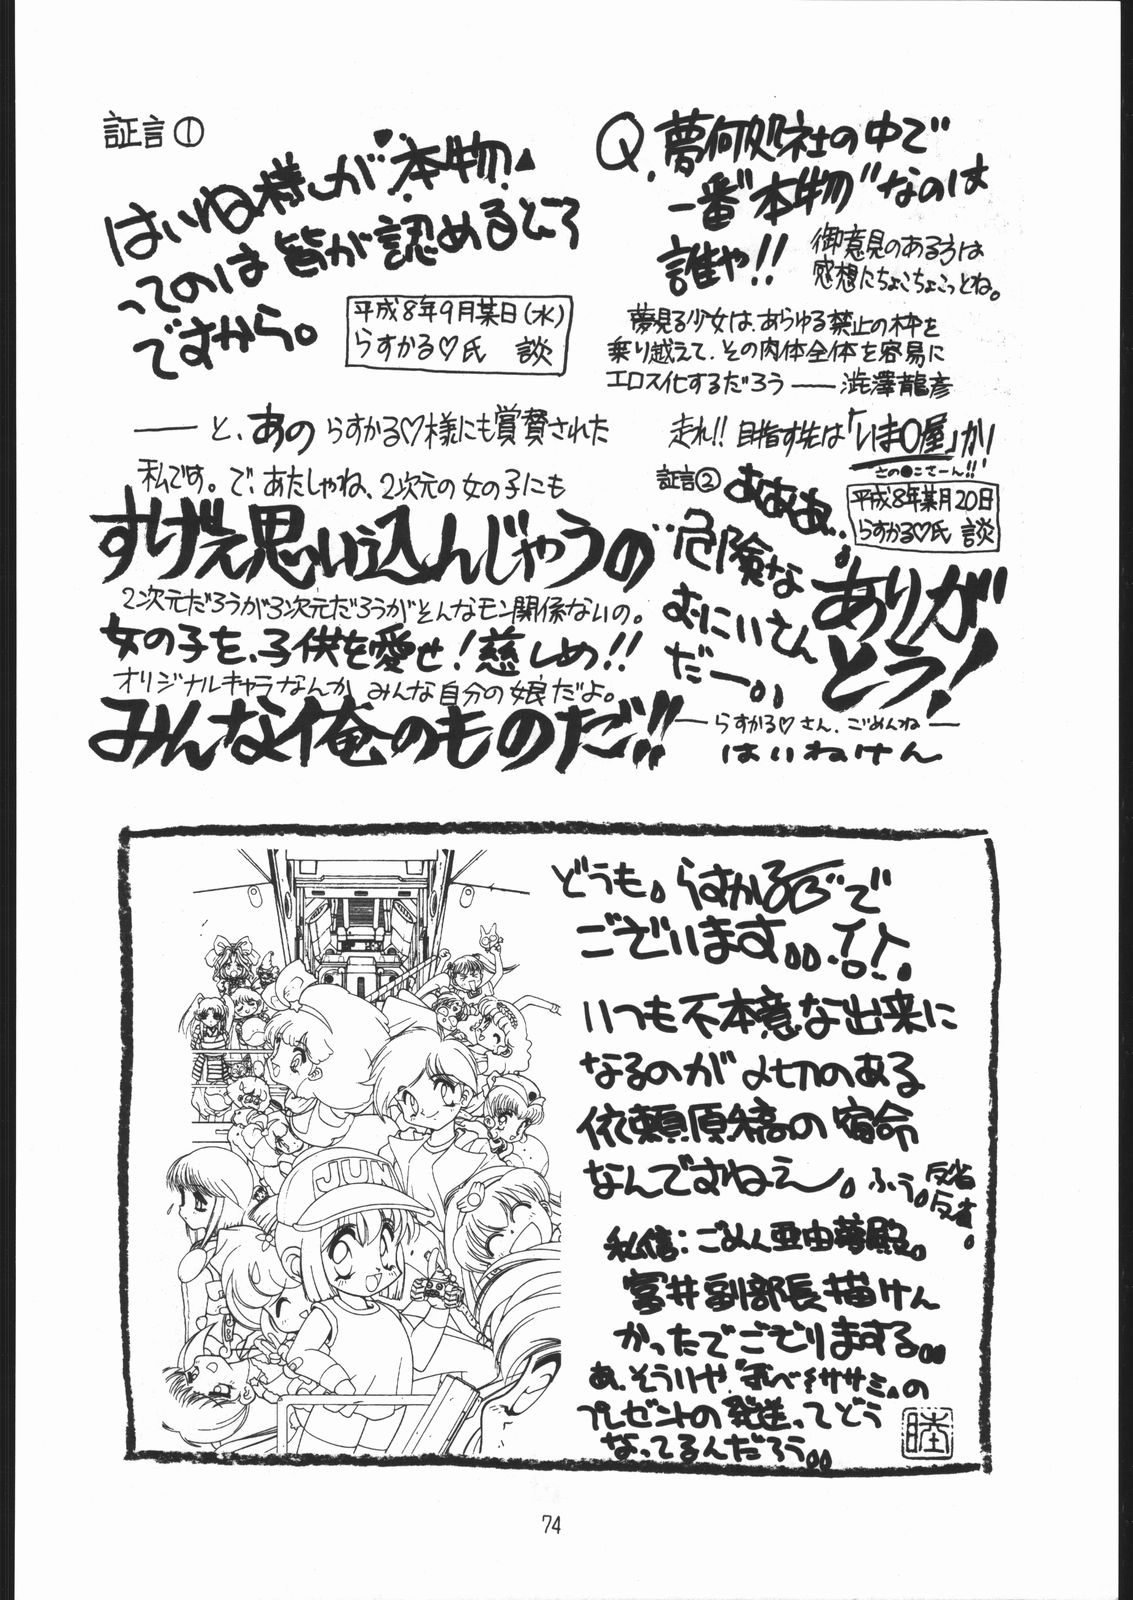 証言①
はいね様が“本物”
ってのは皆が認めるところ
ですから。
平成8年9月某日(水)
らすかる♡氏 談
Q.夢何処社の中で
一番“本物”なのは
誰や!!
御意見のある方は
感想にちょこちょこっとね。
夢見る少女は、あらゆる禁止の枠を
乗り越えて、その肉体全体を容易に
エロス化するだろう――澁澤龍彦
――と、あの らすかる♡様にも賞賛された
私です。で、あたしゃね、2次元の女の子にも
すげぇ思い込んじゃうの
2次元だろうが3次元だろうがそんなモン関係ないの。
女の子を、子供を愛せ!慈しめ!!
オリジナルキャラなんか みんな自分の娘だよ。
みんな俺のものだ!!
走れ!! 目指す先は「いま〇屋」か!
さの●こさーん!!
証言②
あああ…
危険な
むにぃさん
だー。。
平成8年某月20日
らすかる♡氏 談
ありが
とう!
――らすかる♡さん、ごめんね――
はいねけん
どうも。らすかるで
ございます。。
いつも不本意な出来に
なるのが〆切のある
依頼原稿の宿命
なんですねぇ〜。ふぅ。
反省
反省。
私信:ごめん亜由夢殿。
富井副部長描けん
かったでござりまする。。
あ、そういや、“ササミ”の
プレゼントの発送ってどう
なってるんだろう。。
睦
JUN
74